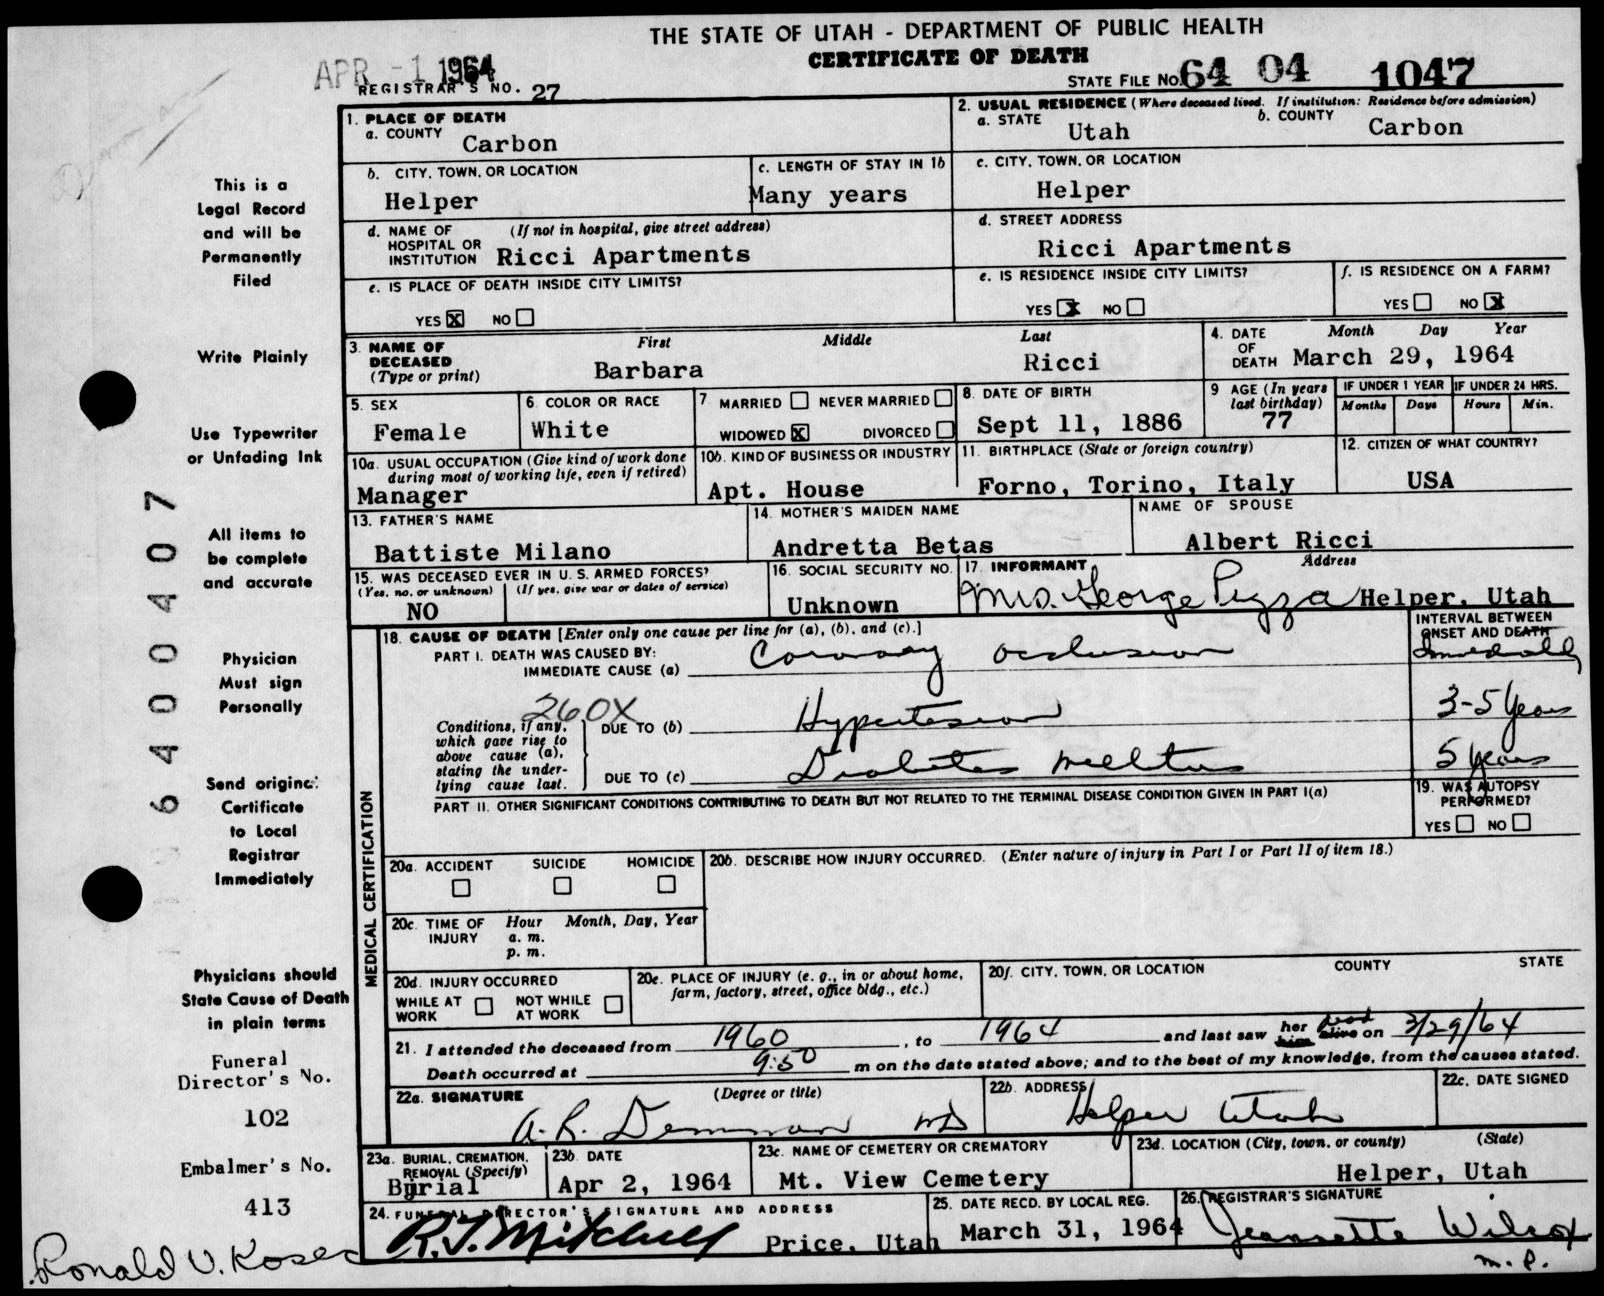 THE STATE OF UTAH - DEPARTMENT OF PUBLIC HEALTH
CERTIFICATE OF DEATH
APR -1 1964
REGISTRAR'S NO. 27
STATE FILE NO. 64 04 1047
1. PLACE OF DEATH
a. COUNTY
Carbon
2. USUAL RESIDENCE (Where deceased lived. If institution: Residence before admission)
a. STATE Utah
b. COUNTY Carbon
b. CITY, TOWN, OR LOCATION
Helper
c. LENGTH OF STAY IN 1b
Many years
c. CITY, TOWN, OR LOCATION
Helper
d. NAME OF HOSPITAL OR INSTITUTION (If not in hospital, give street address)
Ricci Apartments
d. STREET ADDRESS
Ricci Apartments
e. IS PLACE OF DEATH INSIDE CITY LIMITS?
YES X NO
e. IS RESIDENCE INSIDE CITY LIMITS?
YES X NO
f. IS RESIDENCE ON A FARM?
YES NO X
3. NAME OF DECEASED (Type or print)
First Middle Last
Barbara Ricci
4. DATE OF DEATH
Month Day Year
March 29, 1964
5. SEX
Female
6. COLOR OR RACE
White
7. MARRIED NEVER MARRIED
WIDOWED X DIVORCED
8. DATE OF BIRTH
Sept 11, 1886
9 AGE (In years last birthday)
77
IF UNDER 1 YEAR
Months Days
IF UNDER 24 HRS.
Hours Min.
10a. USUAL OCCUPATION (Give kind of work done during most of working life, even if retired)
Manager
10b. KIND OF BUSINESS OR INDUSTRY
Apt. House
11. BIRTHPLACE (State or foreign country)
Forno, Torino, Italy
12. CITIZEN OF WHAT COUNTRY?
USA
13. FATHER'S NAME
Battiste Milano
14. MOTHER'S MAIDEN NAME
Andretta Betas
NAME OF SPOUSE
Albert Ricci
15. WAS DECEASED EVER IN U. S. ARMED FORCES?
(Yes, no, or unknown) (If yes, give war or dates of service)
NO
16. SOCIAL SECURITY NO.
Unknown
17. INFORMANT Address
Mrs. George Pizza Helper, Utah
MEDICAL CERTIFICATION
18. CAUSE OF DEATH [Enter only one cause per line for (a), (b), and (c).]
INTERVAL BETWEEN ONSET AND DEATH
PART I. DEATH WAS CAUSED BY:
IMMEDIATE CAUSE (a) Coronary occlusion
260X
Conditions, if any, which gave rise to above cause (a), stating the underlying cause last.
DUE TO (b) Hypertension 3-5 years
DUE TO (c) Diabetes mellitus 5 years
PART II. OTHER SIGNIFICANT CONDITIONS CONTRIBUTING TO DEATH BUT NOT RELATED TO THE TERMINAL DISEASE CONDITION GIVEN IN PART I(a)
19. WAS AUTOPSY PERFORMED?
YES NO
20a. ACCIDENT SUICIDE HOMICIDE
20b. DESCRIBE HOW INJURY OCCURRED. (Enter nature of injury in Part I or Part II of item 18.)
20c. TIME OF INJURY Hour Month, Day, Year
a. m.
p. m.
20d. INJURY OCCURRED
WHILE AT WORK NOT WHILE AT WORK
20e. PLACE OF INJURY (e. g., in or about home, farm, factory, street, office bldg., etc.)
20f. CITY, TOWN, OR LOCATION COUNTY STATE
21. I attended the deceased from 1960, to 1964 and last saw her him dead alive on 3/29/64
Death occurred at 9:50 m on the date stated above; and to the best of my knowledge, from the causes stated.
22a. SIGNATURE (Degree or title)
A. R. Demman MD
22b. ADDRESS
Helper Utah
22c. DATE SIGNED
23a. BURIAL, CREMATION, REMOVAL (Specify)
Burial
23b. DATE
Apr 2, 1964
23c. NAME OF CEMETERY OR CREMATORY
Mt. View Cemetery
23d. LOCATION (City, town, or county) (State)
Helper, Utah
24. FUNERAL DIRECTOR'S SIGNATURE AND ADDRESS
R. J. Mitchell Price, Utah
25. DATE RECD. BY LOCAL REG.
March 31, 1964
26. REGISTRAR'S SIGNATURE
Jeannette Wilcox
m. p.
This is a
Legal Record
and will be
Permanently
Filed
Write Plainly
Use Typewriter
or Unfading Ink
All items to
be complete
and accurate
Physician
Must sign
Personally
Send original
Certificate
to Local
Registrar
Immediately
Physicians should
State Cause of Death
in plain terms
Funeral
Director's No.
102
Embalmer's No.
413
Ronald V. Koser
64000407